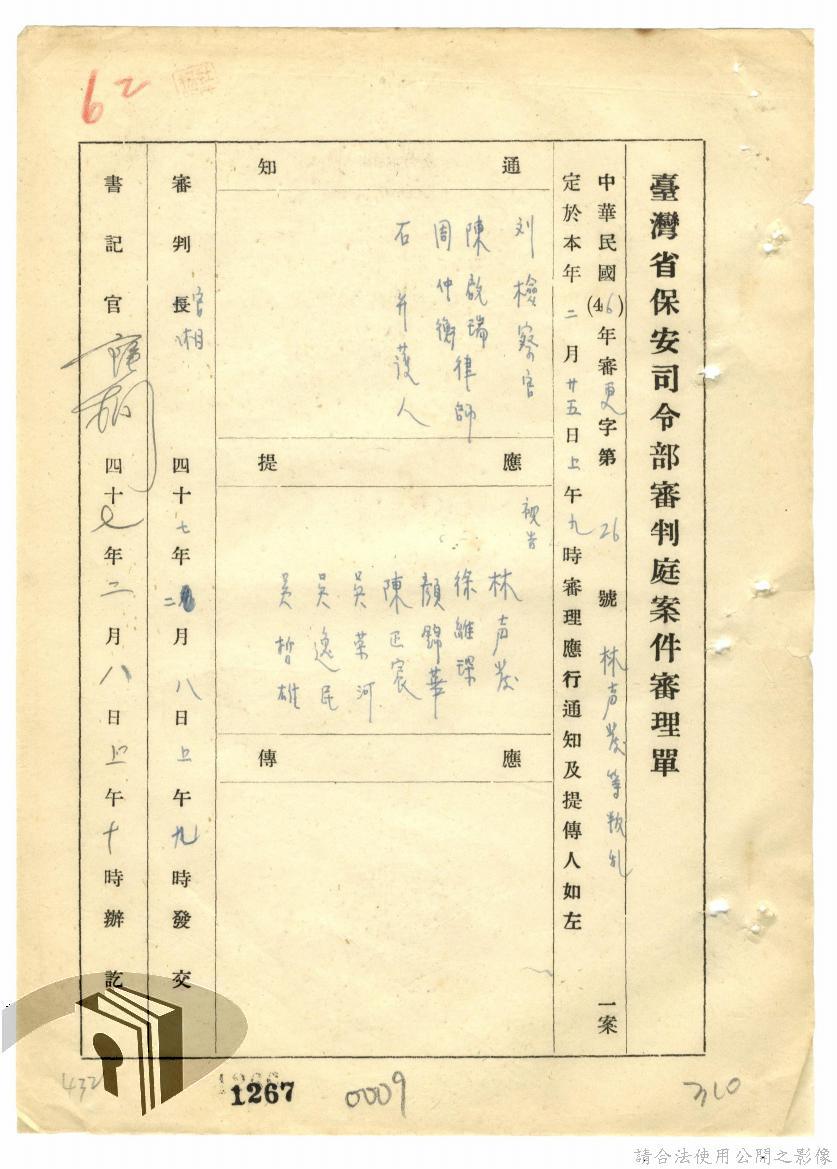 臺灣省保安司令部審判庭案件審理單
中華民國(46)年審更字第26號林声發等叛乱一案
定於本年二月廿五日上午九時審理應行通知及提傳人如左
通知
刘檢察官
陳啟瑞律師
周仲衡
石 护護人
應提
被告
林声發
徐維琛
顏錦華
陳正宸
吳荣河
吳逸民
吳哲雄
應傳
審判長官湘
四十七年二月八日上午九時發交
書記官
四十七年二月八日上午十時辦訖
62
432
1267
0009
310
請合法使用公開之影像